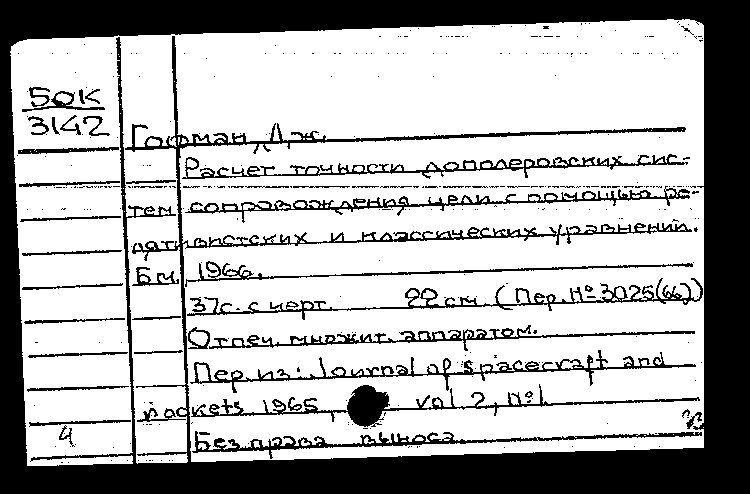 50К
3142
Гофман, Дж.
Расчет точности дополеровских сис-
тем сопровождения цели с помощью ре-
лятивистских и классических уравнений.
Б.м. 1966.
37с. с черт. 22 см (Пер. № 3025(66))
Отпеч. множит. аппаратом.
Пер. из: Journal of spacecraft and
rockets 1965, vol. 2, №1
4 Без права выноса.